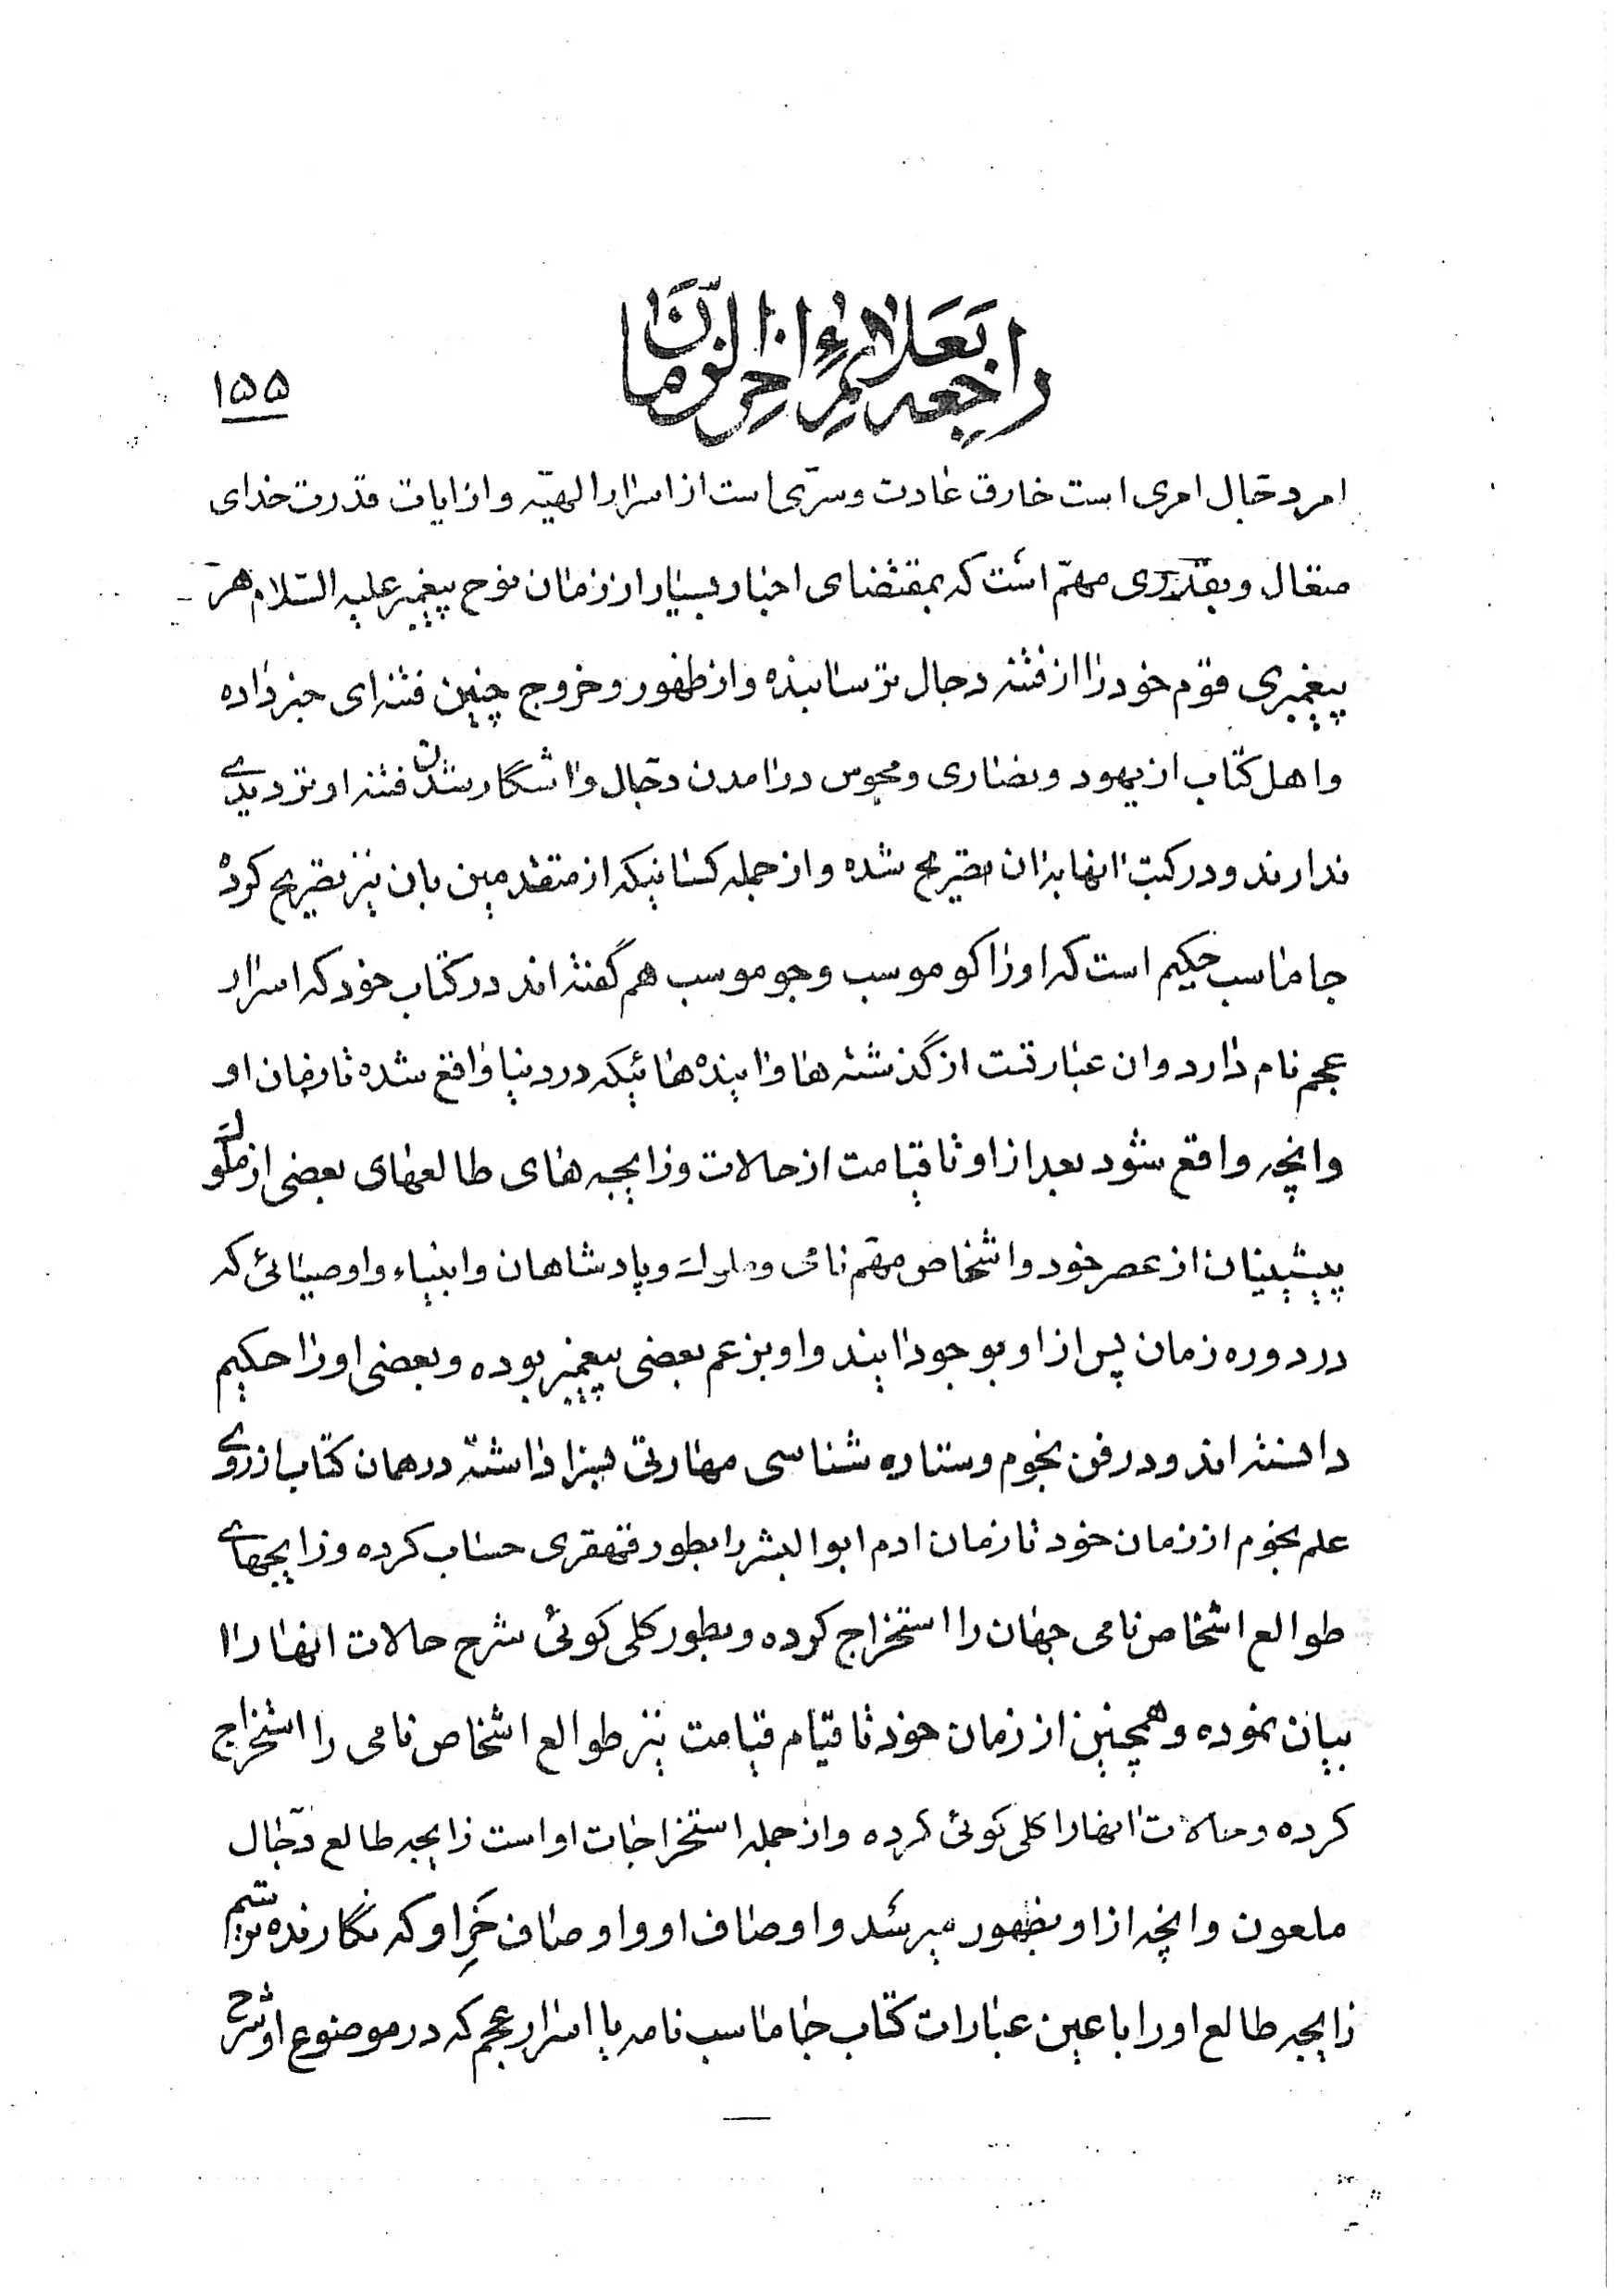 راجعه بعلائم اخر الزمان
۱۵۵
امر دجّال امری است خارق عادت و سرّی است از اسرار الهیّه و از ایات قدرت خدای
متعال و بقدری مهمّ است که بمقتضای اخبار بسیار از زمان نوح پیغمبر علیه السّلام هر
پیغمبری قوم خود را از فتنه دجال ترسانیده و از ظهور و خروج چنین فتنه‌ای خبر داده
و اهل کتاب از یهود و نصاری و مجوس در امدن دجّال و اشکار شدن فتنه او تردیدی
ندارند و در کتب انها بدان تصریح شده و از جمله کسانیکه از متقدمین بان نیز تصریح کرده
جاماسب حکیم است که او را کوموسب و جوموسب هم گفته اند در کتاب خود که اسرار
عجم نام دارد و ان عبارتست از گذشته ها و اینده هائیکه در دنیا واقع شده تا زمان او
و انچه واقع شود بعد از او تا قیامت از حالات و زایجه های طالعهای بعضی از ملوک
پیشینیان از عصر خود و اشخاص مهم نامی و ملوک و پادشاهان و انبیاء و اوصیائی که
در دوره زمان پس از او بوجود ایند و او بزعم بعضی پیغمبر بوده و بعضی او را حکیم
دانسته اند و در فن نجوم و ستاره شناسی مهارتی بسزا داشته در همان کتاب از روی
علم نجوم از زمان خود تا زمان ادم ابو البشر را بطور قهقری حساب کرده و زایجهای
طوالع اشخاص نامی جهان را استخراج کرده و بطور کلی گوئی شرح حالات انها را
بیان نموده و همچنین از زمان خود تا قیام قیامت نیز طوالع اشخاص نامی را استخراج
کرده و حالات انها را کلی گوئی کرده و از جمله استخراجات او است زایجه طالع دجّال
ملعون و انچه از او بظهور میرسد و اوصاف او و اوصاف خَرِ او که نگارنده ترسیم
زایجه طالع او را با عین عبارات کتاب جاماسب نامه یا اسرار عجم که در موضوع او شرح